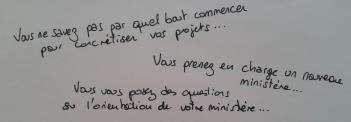 Vous ne savez pas par quel bout commencer
pour concrétiser vos projets...
Vous prenez en charge un nouveau
ministère...
Vous vous posez des questions
sur l'orientation de votre ministère...